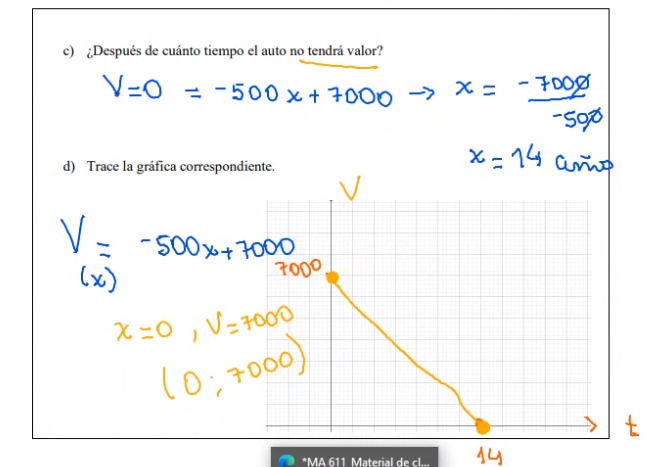 c) ¿Después de cuánto tiempo el auto no tendrá valor?
V=0 = -500x+7000 → x = -7000/-500
x = 14 años
d) Trace la gráfica correspondiente.
V
V(x) = -500x+7000
7000
x=0, V=7000
(0; 7000)
t
14
*MA 611 Material de cl...